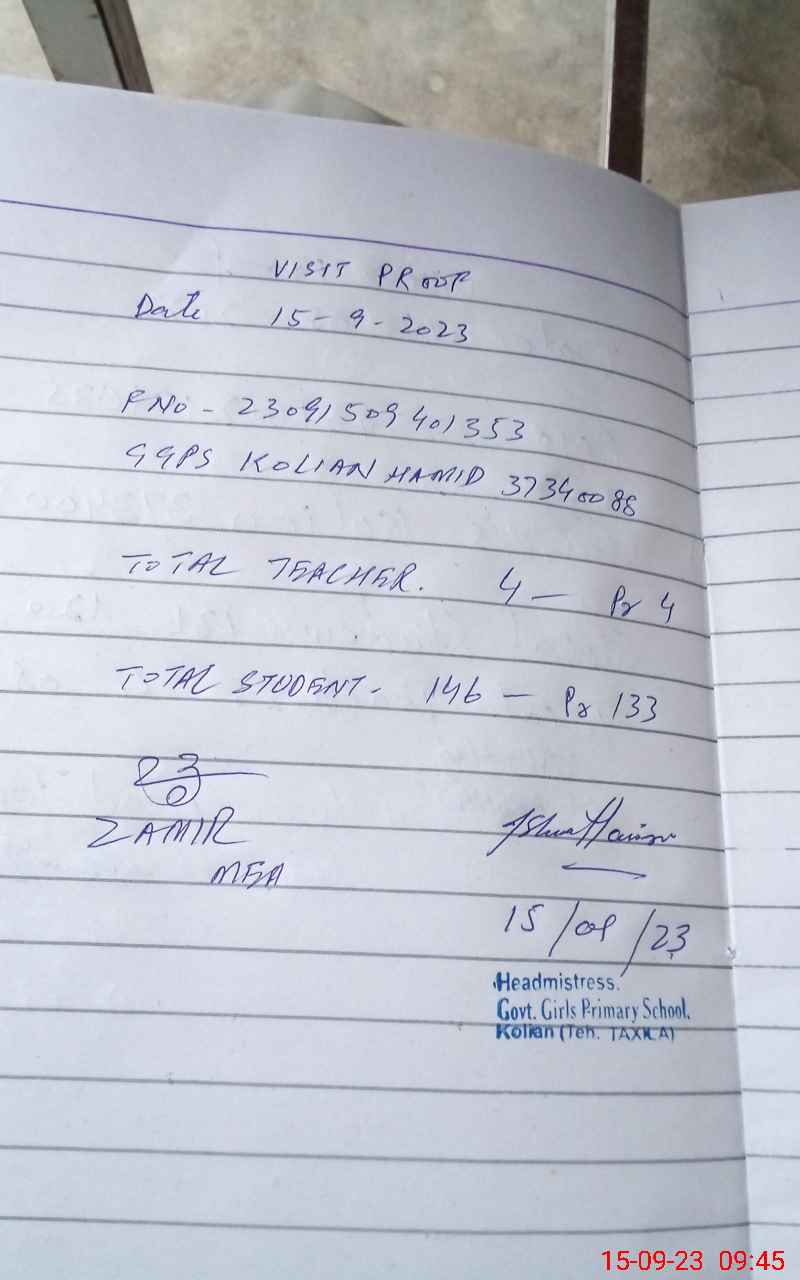 VISIT PROOF
Date 15-9-2023
FNO - 23091509401353
GGPS KOLIAN HAMID 37340088
TOTAL TEACHER. 4 — Pr 4
TOTAL STUDENT - 146 — Pr 133
ZAMIR
MEA
15/09/23
Headmistress.
Govt. Girls Primary School.
Kolian (Teh. TAXILA)
15-09-23 09:45